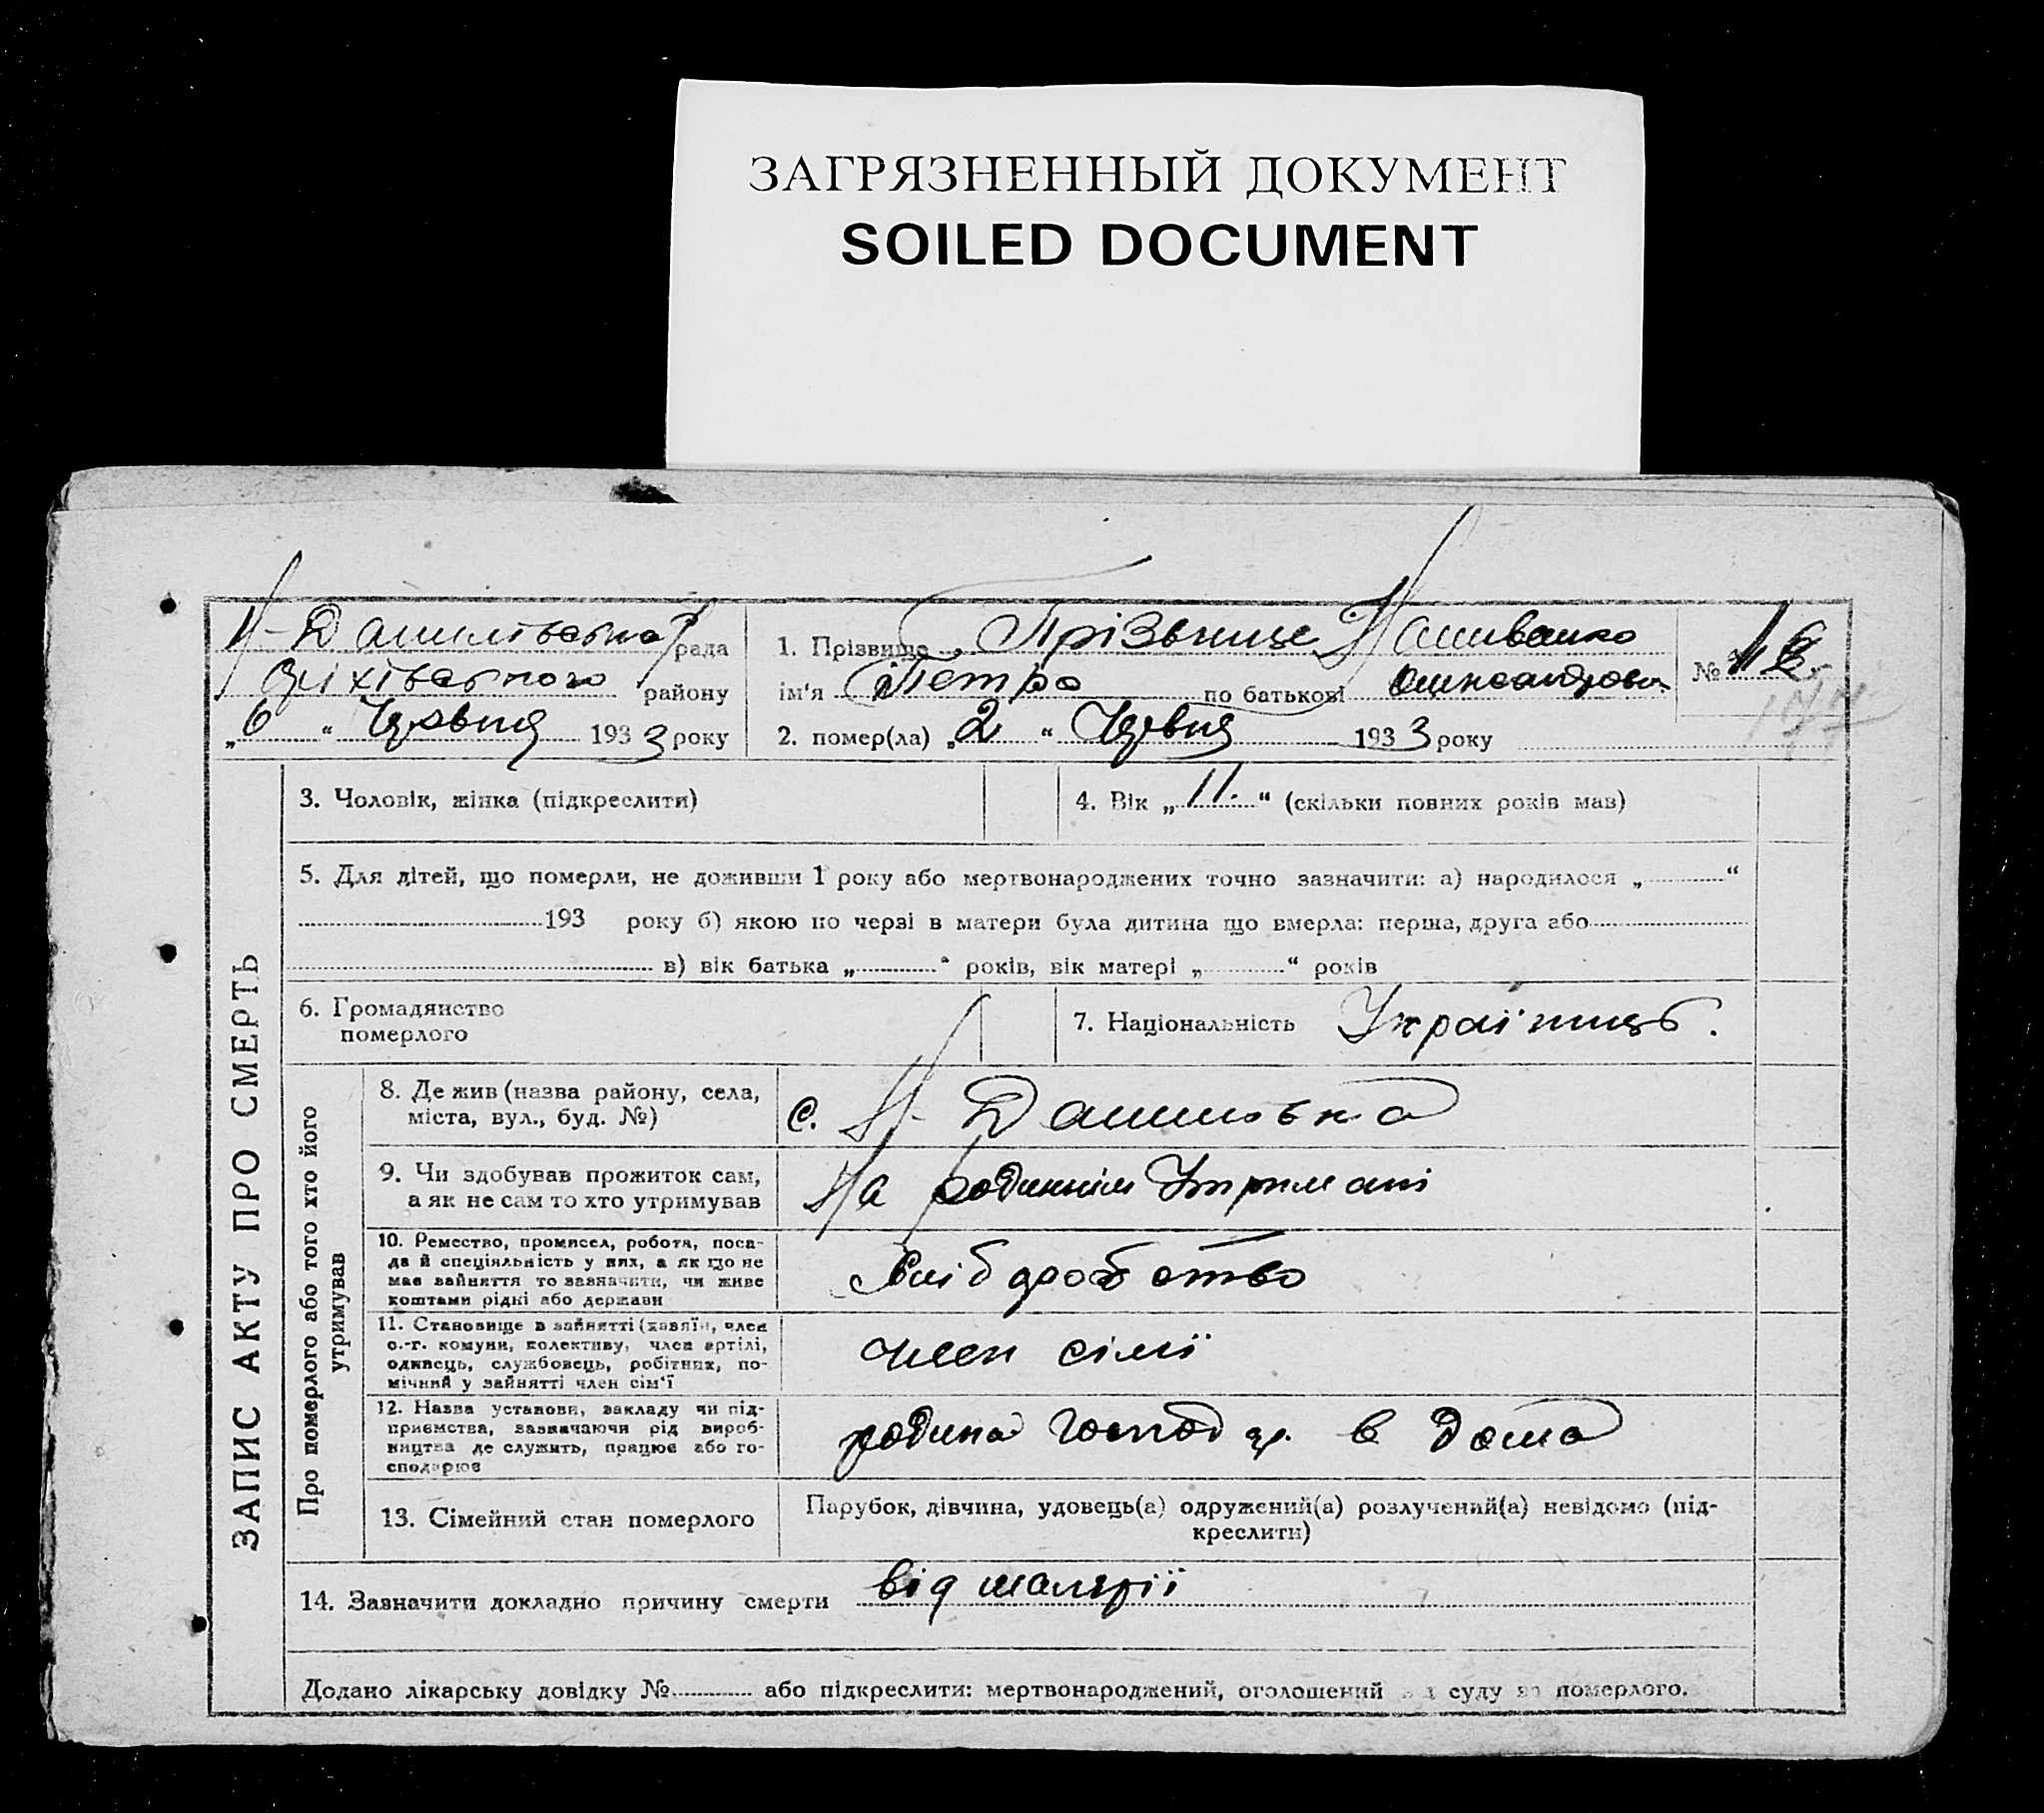 ЗАГРЯЗНЕННЫЙ ДОКУМЕНТ
SOILED DOCUMENT
Н-Данилівська рада
Оріхівського району
„6“ Червня 1933 року
1. Прізвище Прізвище Наливайко
ім'я Петро по батькові
2. помер(ла) „2“ Червня 1933 року
№
177
ЗАПИС АКТУ ПРО СМЕРТЬ
3. Чоловік, жінка (підкреслити)
4. Вік „11.“ (скільки повних років мав)
5. Для дітей, що померли, не доживши 1 року або мертвонароджених точно зазначити: а) народилося „ “
193 року б) якою по черзі в матери була дитина що вмерла: перша, друга або
в) вік батька „ “ років, вік матері „ “ років
6. Громадянство
померлого
7. Національність Українець.
Про померлого або того хто його
утримував
8. Де жив (назва району, села,
міста, вул., буд. №)
с. Н-Данилівка
9. Чи здобував прожиток сам,
а як не сам то хто утримував
На родиннім Утримані
10. Ремество, промисел, робота, поса-
да й спеціяльність у них, а як що не
має зайняття то зазначити, чи живе
коштами рідні або держави
Хліборобство
11. Становище в зайнятті (хазяїн, член
с.-г. комуни, колективу, член артілі,
одинець, службовець, робітник, по-
мічний у зайнятті член сім'ї
член сімї
12. Назва установи, закладу чи під-
приємства, зазначаючи рід вироб-
ництва де служить, працює або го-
сподарює
родина господ ар. в дома
13. Сімейний стан померлого
Парубок, дівчина, удовець(а) одружений(а) розлучений(а) невідомо (під-
креслити)
14. Зазначити докладно причину смерти від малярії
Додано лікарську довідку № або підкреслити: мертвонароджений, оголошений суду за померлого.